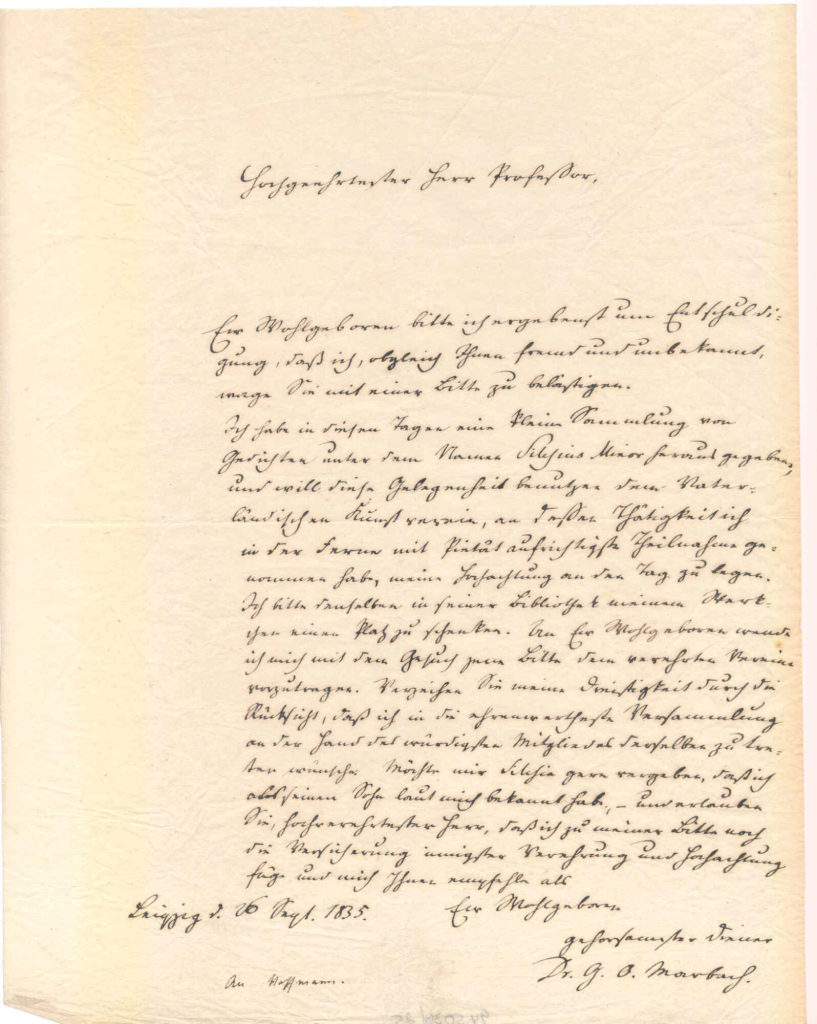 Hochgeehrtester Herr Professor,
Ew Wohlgeboren bitte ich ergebenst um Entschuldi-
gung, daß ich, obgleich Ihnen fremd und unbekannt,
wage Sie mit einer Bitte zu belästigen.
Ich habe in diesen Tagen eine kleine Sammlung von
Gedichten unter dem Namen Silesius Minor herausgegeben,
und will diese Gelegenheit benutzen dem Vater-
ländischen Kunstverein, an dessen Thätigkeit ich
in der Ferne mit Pietät aufrichtigste Theilnahme ge-
nommen habe, meine Hochachtung an den Tag zu legen.
Ich bitte denselben in seiner Bibliothek meinem Werk-
chen einen Platz zu schenken. An Ew Wohlgeboren wende
ich mich mit dem Gesuch jene Bitte dem verehrten Vereine
vorzutragen. Verzeihen Sie meine Dreistigkeit durch die
Rücksicht, daß ich in die ehrenwertheste Versammlung
an der Hand des würdigsten Mitgliedes derselben zu tre-
ten wünsche. Möchte mir gern vergeben, daß ich
als seinen Sohn laut mich bekannt habe, – und erlauben
Sie, hochverehrtester Herr, daß ich zu meiner Bitte noch
die Versicherung innigster Verehrung und Hochachtung
füge und mich Ihnen empfehle als
Leipzig d. 26 Sept. 1835. Ew Wohlgeboren
gehorsamster Diener
Dr. G. O. Marbach.
An Hoffmann.